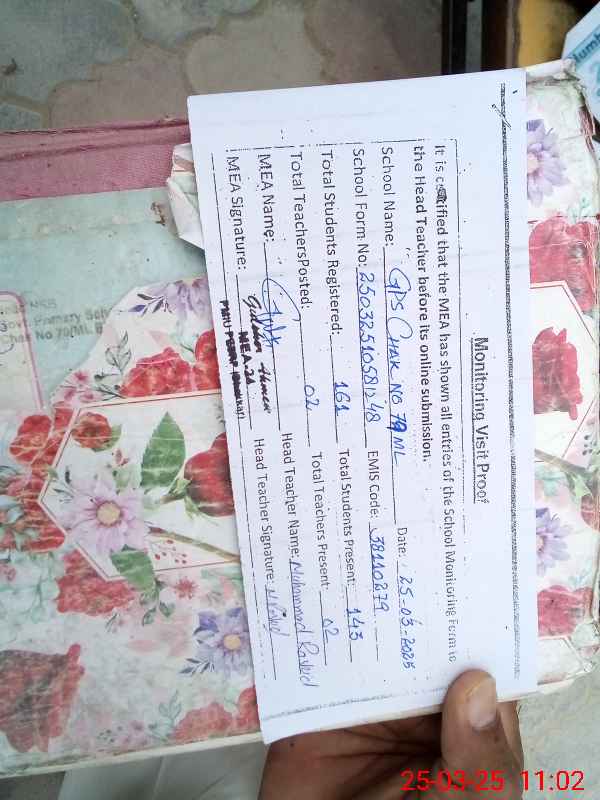 Monitoring Visit Proof
It is certified that the MEA has shown all entries of the School Monitoring Form to
the Head Teacher before its online submission.
School Name: GPS CHAK NO 79 ML Date: 25-03-2025
School Form No: EMIS Code: 38110279
Total Students Registered: 161 Total Students Present: 143
Total TeachersPosted: 02 Total Teachers Present 02
MEA Name: Head Teacher Name: Muhammad Rashid
MEA Signature: MEA-21 Head Teacher Signature:
Govt. Primary
Chak No 79/ML
25-03-25 11:02